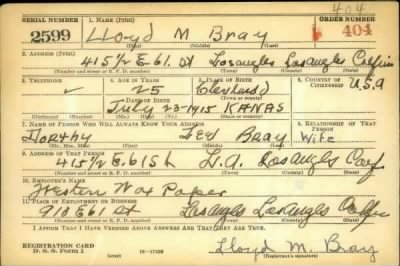 404
SERIAL NUMBER 1. NAME (Print) ORDER NUMBER
2599 Lloyd M Bray 404
(First) (Middle) (Last)
2. ADDRESS (Print)
415 1/2 E. 61. St Los angles Los angles Calif
(Number and street or R. F. D. number) (Town) (County) (State)
3. TELEPHONE 4. AGE IN YEARS 5. PLACE OF BIRTH 6. COUNTRY OF CITIZENSHIP
25 U.S.A
(Town or county)
DATE OF BIRTH
July 23-1915 KANAS
(Exchange) (Number) (Mo.) (Day) (Yr.) (State or country)
7. NAME OF PERSON WHO WILL ALWAYS KNOW YOUR ADDRESS 8. RELATIONSHIP OF THAT PERSON
Dorthy Bray Wife
(Mr., Mrs., Miss) (First) (Middle) (Last)
9. ADDRESS OF THAT PERSON
415 1/2 E. 61 St L.A. Los angles Calf
(Number and street or R. F. D. number) (Town) (County) (State)
10. EMPLOYER'S NAME
Western Wax Paper
11. PLACE OF EMPLOYMENT OR BUSINESS
911 E 61 St Los angles Los angles Calif
(Number and street or R. F. D. number) (Town) (County) (State)
I AFFIRM THAT I HAVE VERIFIED ABOVE ANSWERS AND THAT THEY ARE TRUE.
REGISTRATION CARD
D. S. S. Form 1 (over) 16-17105 Lloyd M. Bray
(Registrant's signature)